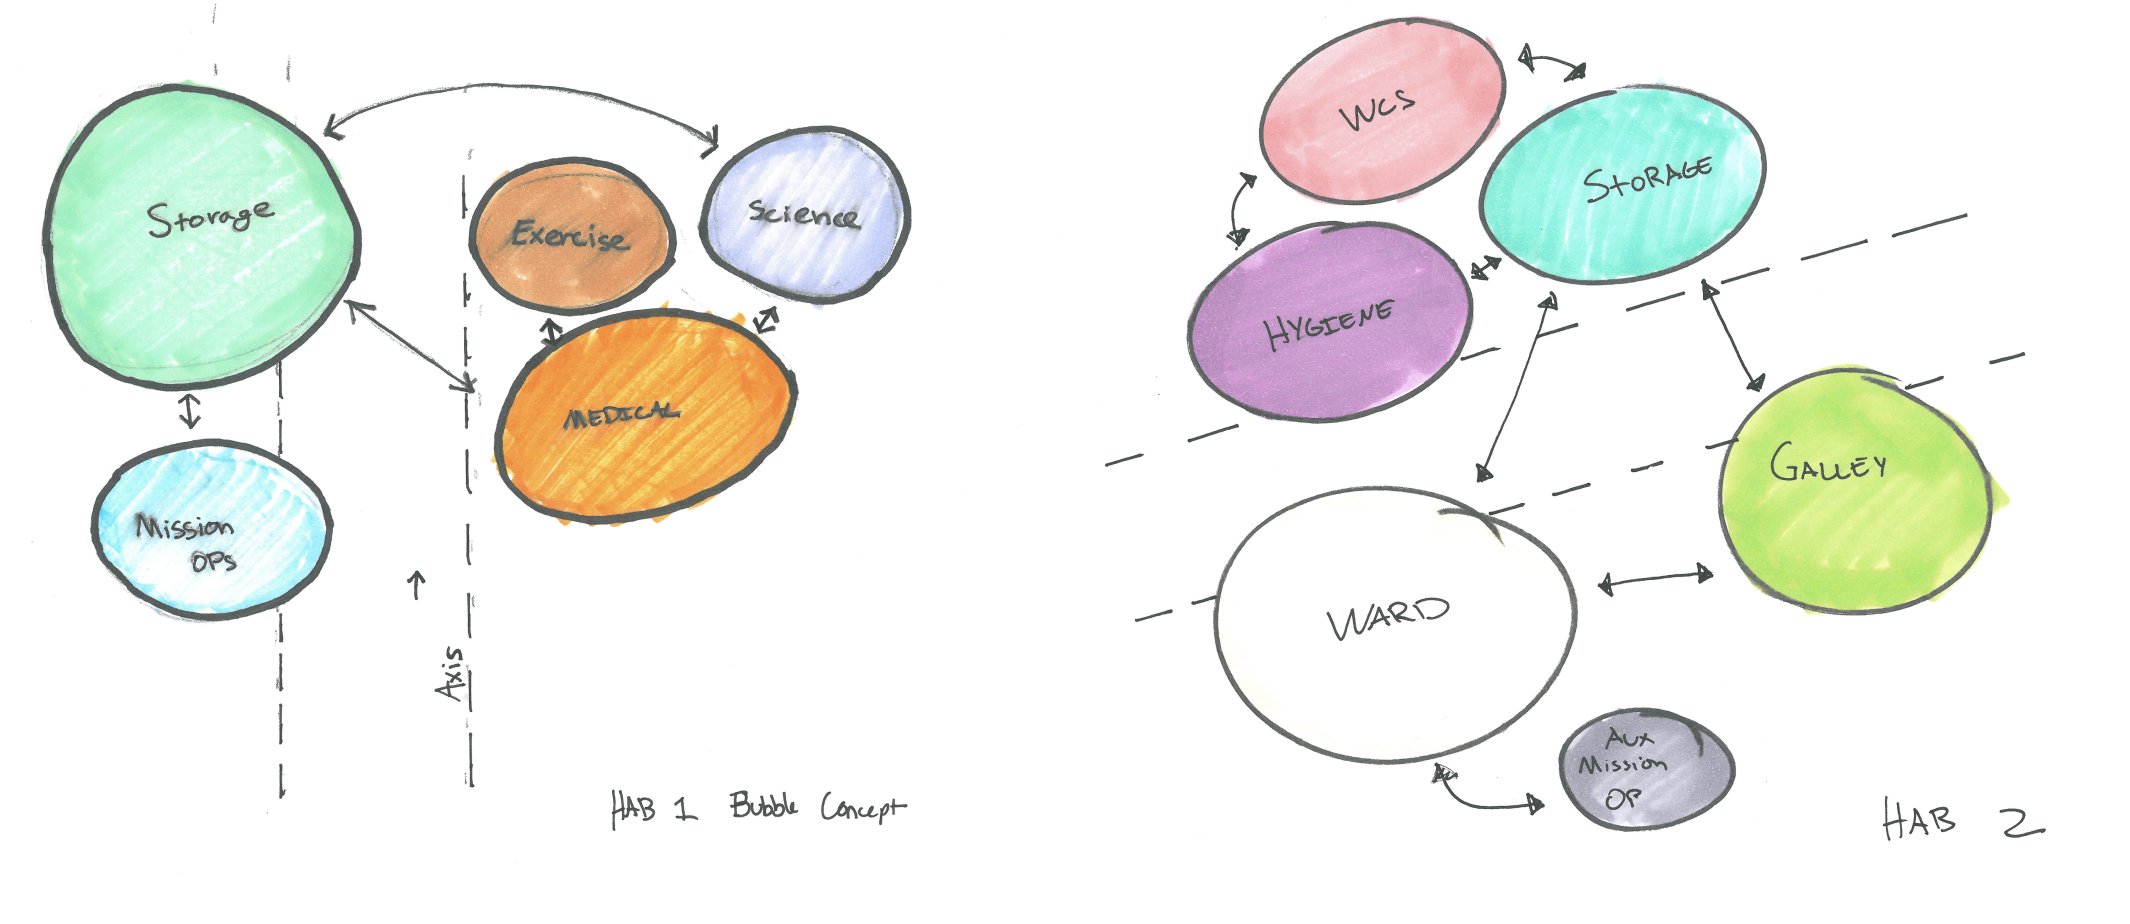 Storage
Exercise
Science
MEDICAL
Mission
OPs
Axis
HAB 1 Bubble Concept
WCS
STORAGE
HYGIENE
GALLEY
WARD
AUX
Mission
OP
HAB 2